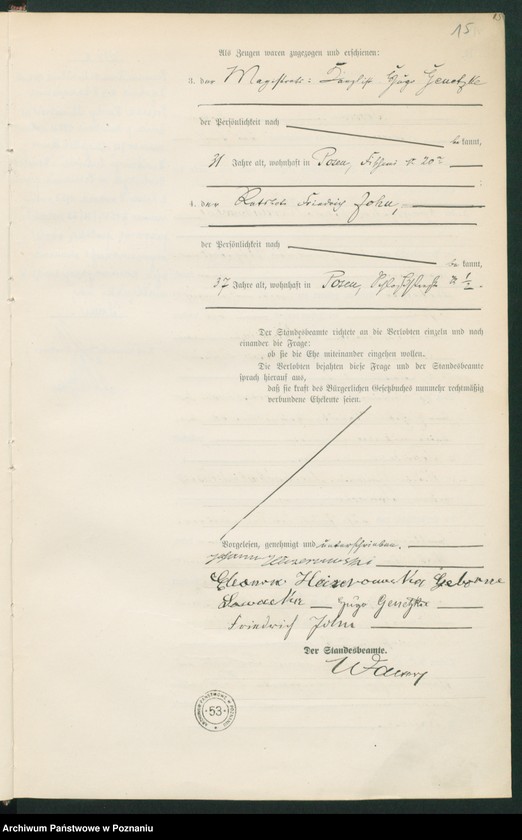 15
Als Zeugen waren zugezogen und erschienen:
3. der Magistrats: Kanzlist Hugo Genetzke
der Persönlichkeit nach
be kannt,
31 Jahre alt, wohnhaft in Posen, Fischerei № 20
4. der Ratsbote Friedrich John,
der Persönlichkeit nach
be kannt,
37 Jahre alt, wohnhaft in Posen, Schloßstraße №
Der Standesbeamte richtete an die Verlobten einzeln und nach
einander die Frage:
ob sie die Ehe miteinander eingehen wollen.
Die Verlobten bejahten diese Frage und der Standesbeamte
sprach hierauf aus,
daß sie kraft des Bürgerlichen Gesetzbuches nunmehr rechtmäßig
verbundene Eheleute seien.
Vorgelesen, genehmigt und unterschrieben.
Johann
Eleonora Geborne
Hugo Genetzke
Friedrich John
Der Standesbeamte.
ARCHIWUM PAŃSTWOWE W POZNANIU
53
Archiwum Państwowe w Poznaniu